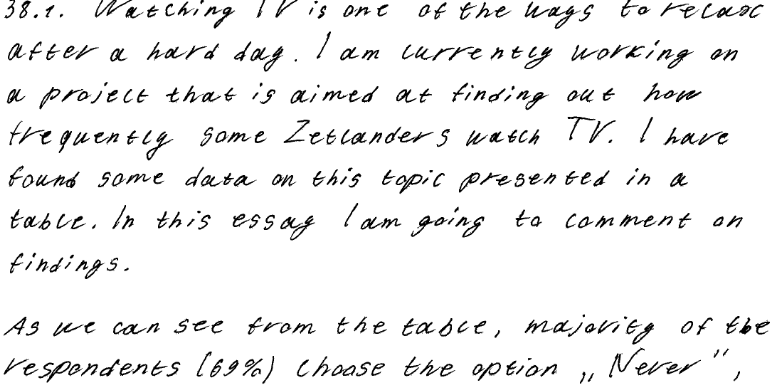 38.1. Watching TV is one of the ways to relax
after a hard day. I am currently working on
a project that is aimed at finding out how
frequently some Zetlanders watch TV. I have
found some data on this topic presented in a
table. In this essay I am going to comment on
findings.
As we can see from the table, majority of the
respondents (69%) choose the option „Never",